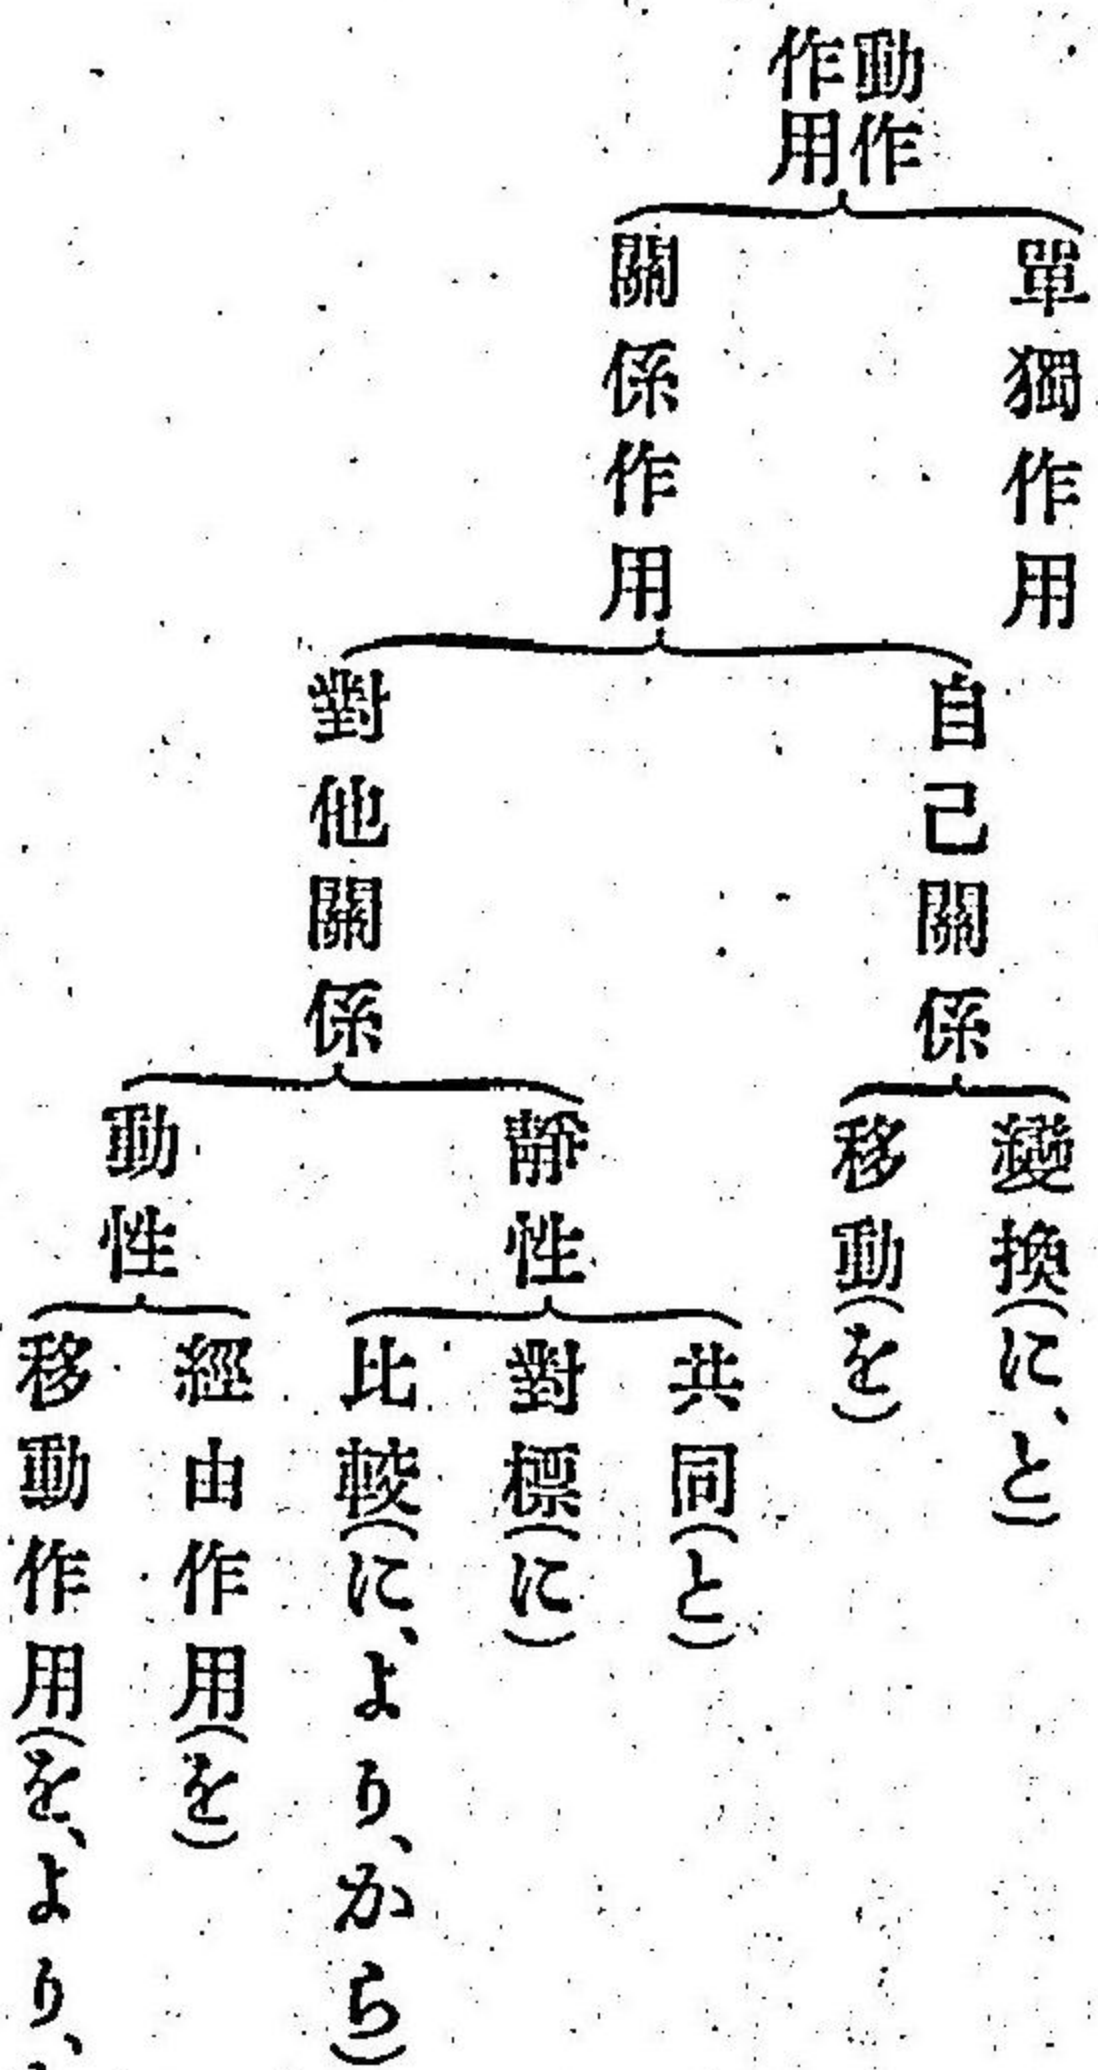 動作
作用
單獨作用
關係作用
自己關係
對他關係
變換(に、と)
移動(を)
靜性
動性
共同(と)
對標(に)
比較(に、より、から)
經由作用(を)
移動作用(を、より、